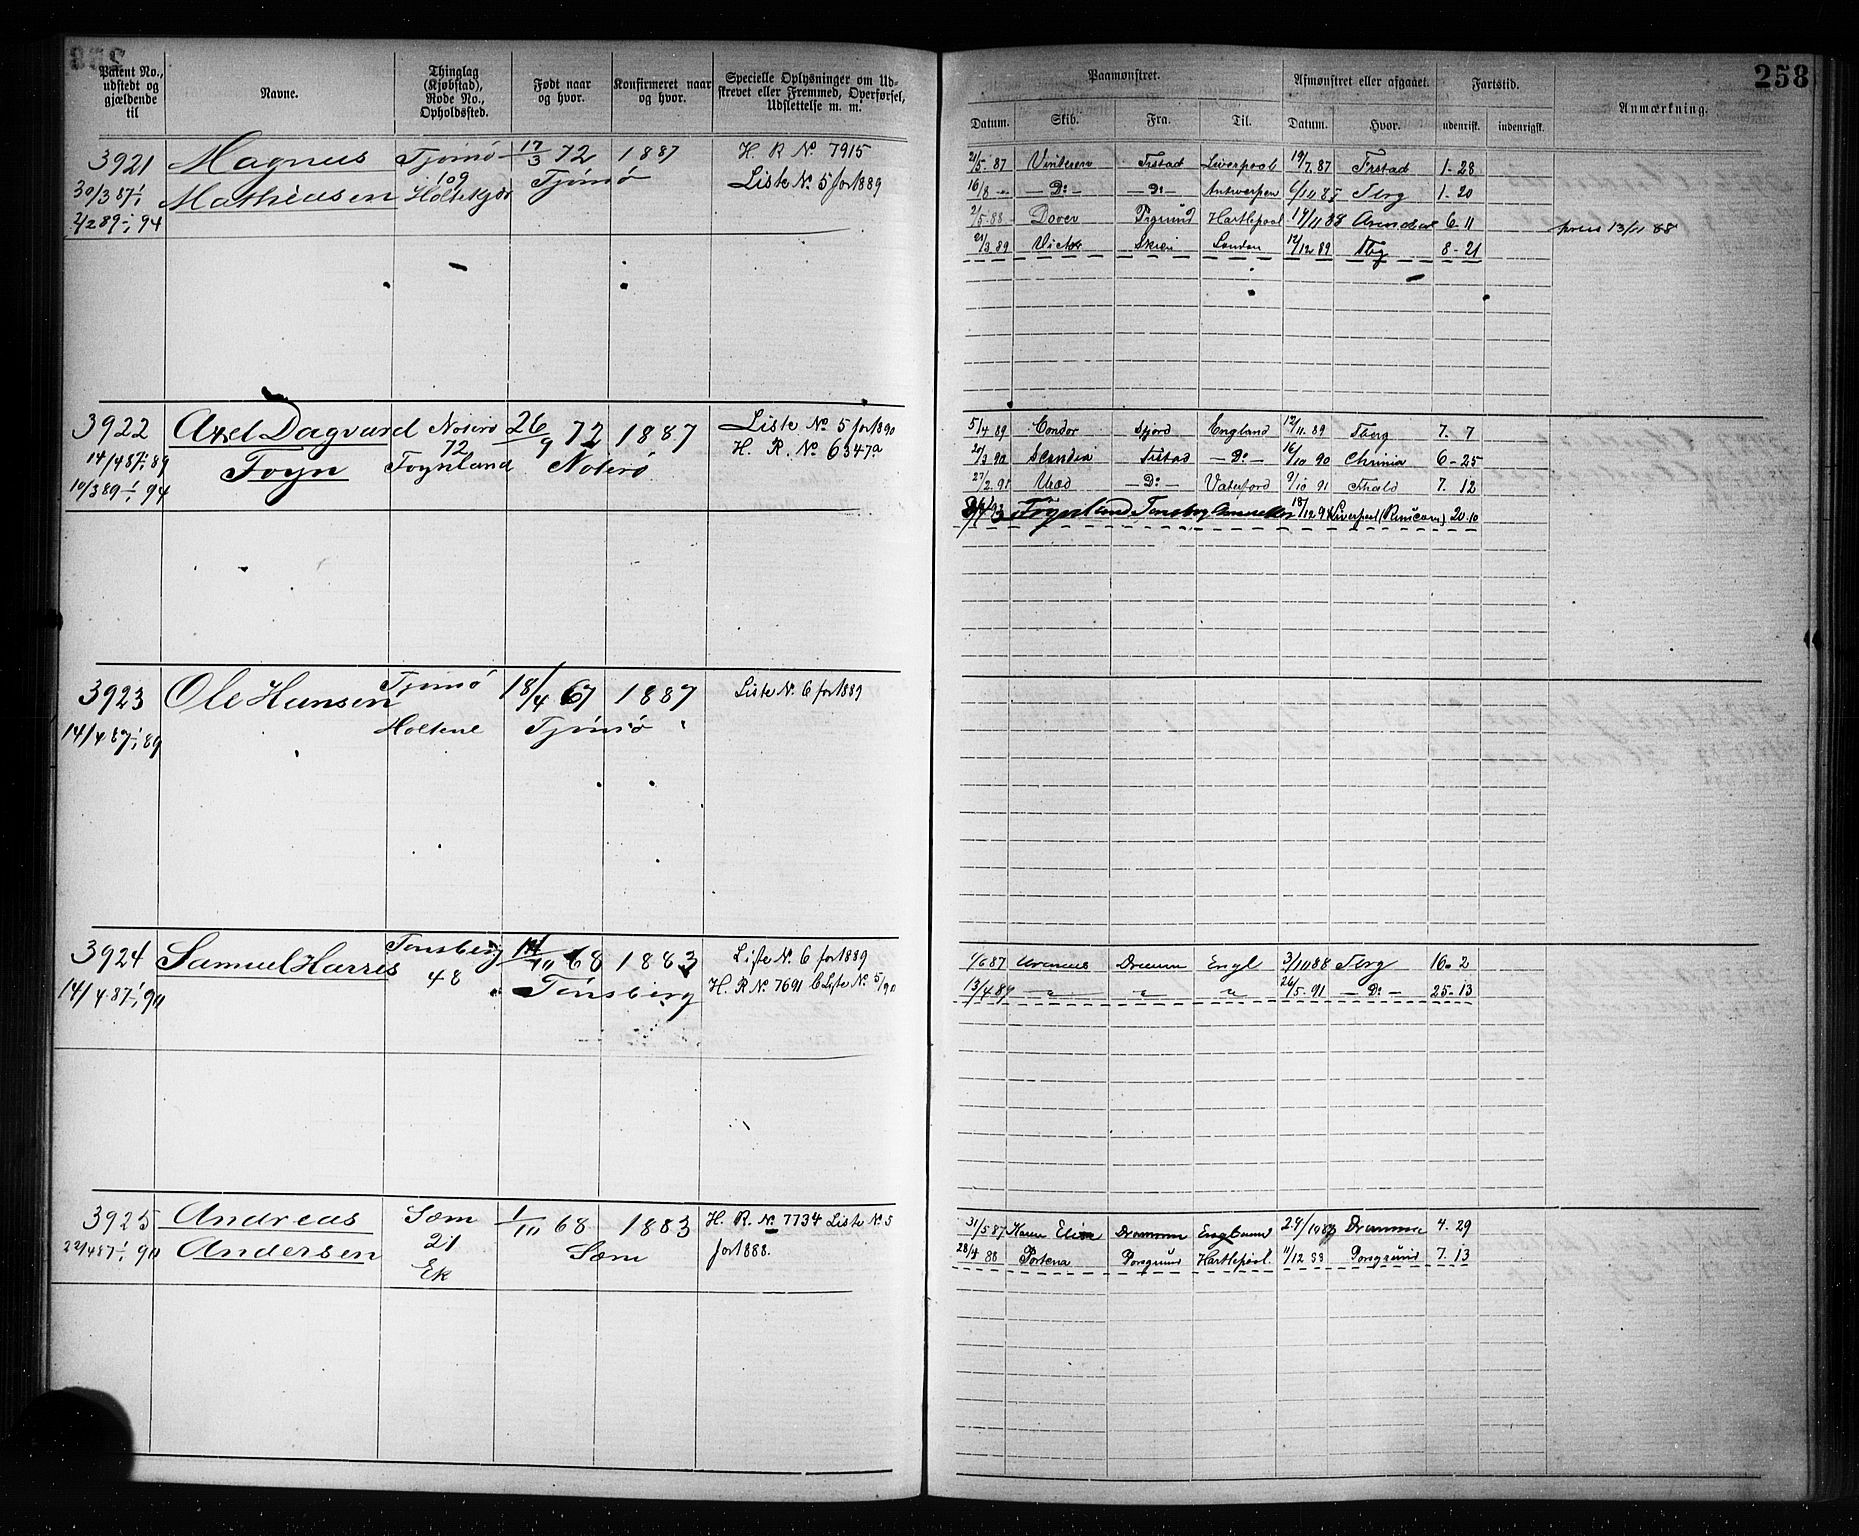 258
Patent No., udstedt og gjældende til
Navne.
Thinglag (Kjøbstad), Rode No., Opholdssted.
Født naar og hvor.
Konfirmeret naar og hvor.
Specielle Oplysninger om Udskrevet eller Fremmed, Overførsel, Udslettelse m. m.
Paamønstret.
Afmønstret eller afgaaet.
Fartstid.
Anmærkning.
Datum. Skib. Fra. Til. Datum. Hvor. udenrigsk. indenrigsk.
3921 Magnus Tjømø 17/3 72 1887 H. R. No. 7915
30/3 87 Mathiasen 109 Holtekjær Tjømø Liste No. 5 for 1889
2/2 89 - 94
21/5 87 Frstad Liverpool 19/7 87 Frstad 1-28
16/8 - - Do - - Do - Antwerpen Tbrg 1-20
2/5 88 Dover Prgrund Hartlepool 19/11 88 Arendal 6-11
21/3 89 Victor Skien London 12/12 89 Tbg 8-21
3922 Axel Dagvard Nøterø 26/9 72 1887 Liste No 5 for 1890
14/4 87 - 89 Foyn 72 Foynland Nøterø H. R. No 6347a
10/3 89 - 94
5/4 89 Condor Fjord England 12/11 89 Tbrg 7. 7
21/3 90 Scandia Frstad - Do - 16/10 90 Chrinia 6-25
27/2 91 - Do - Vaterford 9/10 91 Frhald 7. 12
Føynland Tønsbrg 18/12 94 Liverpool (Runcorn) 20.10
3923 Ole Hansen Tjømø 18/4 67 1887 Liste No. 6 for 1889
14/4 87 - 89 Holtene Tjømø
3924 Samuel Harris Tønsberg 68 1883 Liste No. 6 for 1889
14/4 87 - 90 48 Tønsberg H. R No. 7691 Liste No. 5/90
1/6 87 Uranus Dramm Engl 3/10 88 Tbrg 16. 2
13/4 89 26/5 91 - Do - 25-13
3925 Andreas Sæm 1/10 68 1883 H. R. No 7734 Liste No. 5
22/4 87 - 90 Andersen 21 Sæm for 1888.
Ek
31/5 87 Karen Elise Drammen England 29/10 87 Drammen 4. 29
28/4 88 Porsgrund Hartlepool. 11/12 88 Porsgrund 7. 13